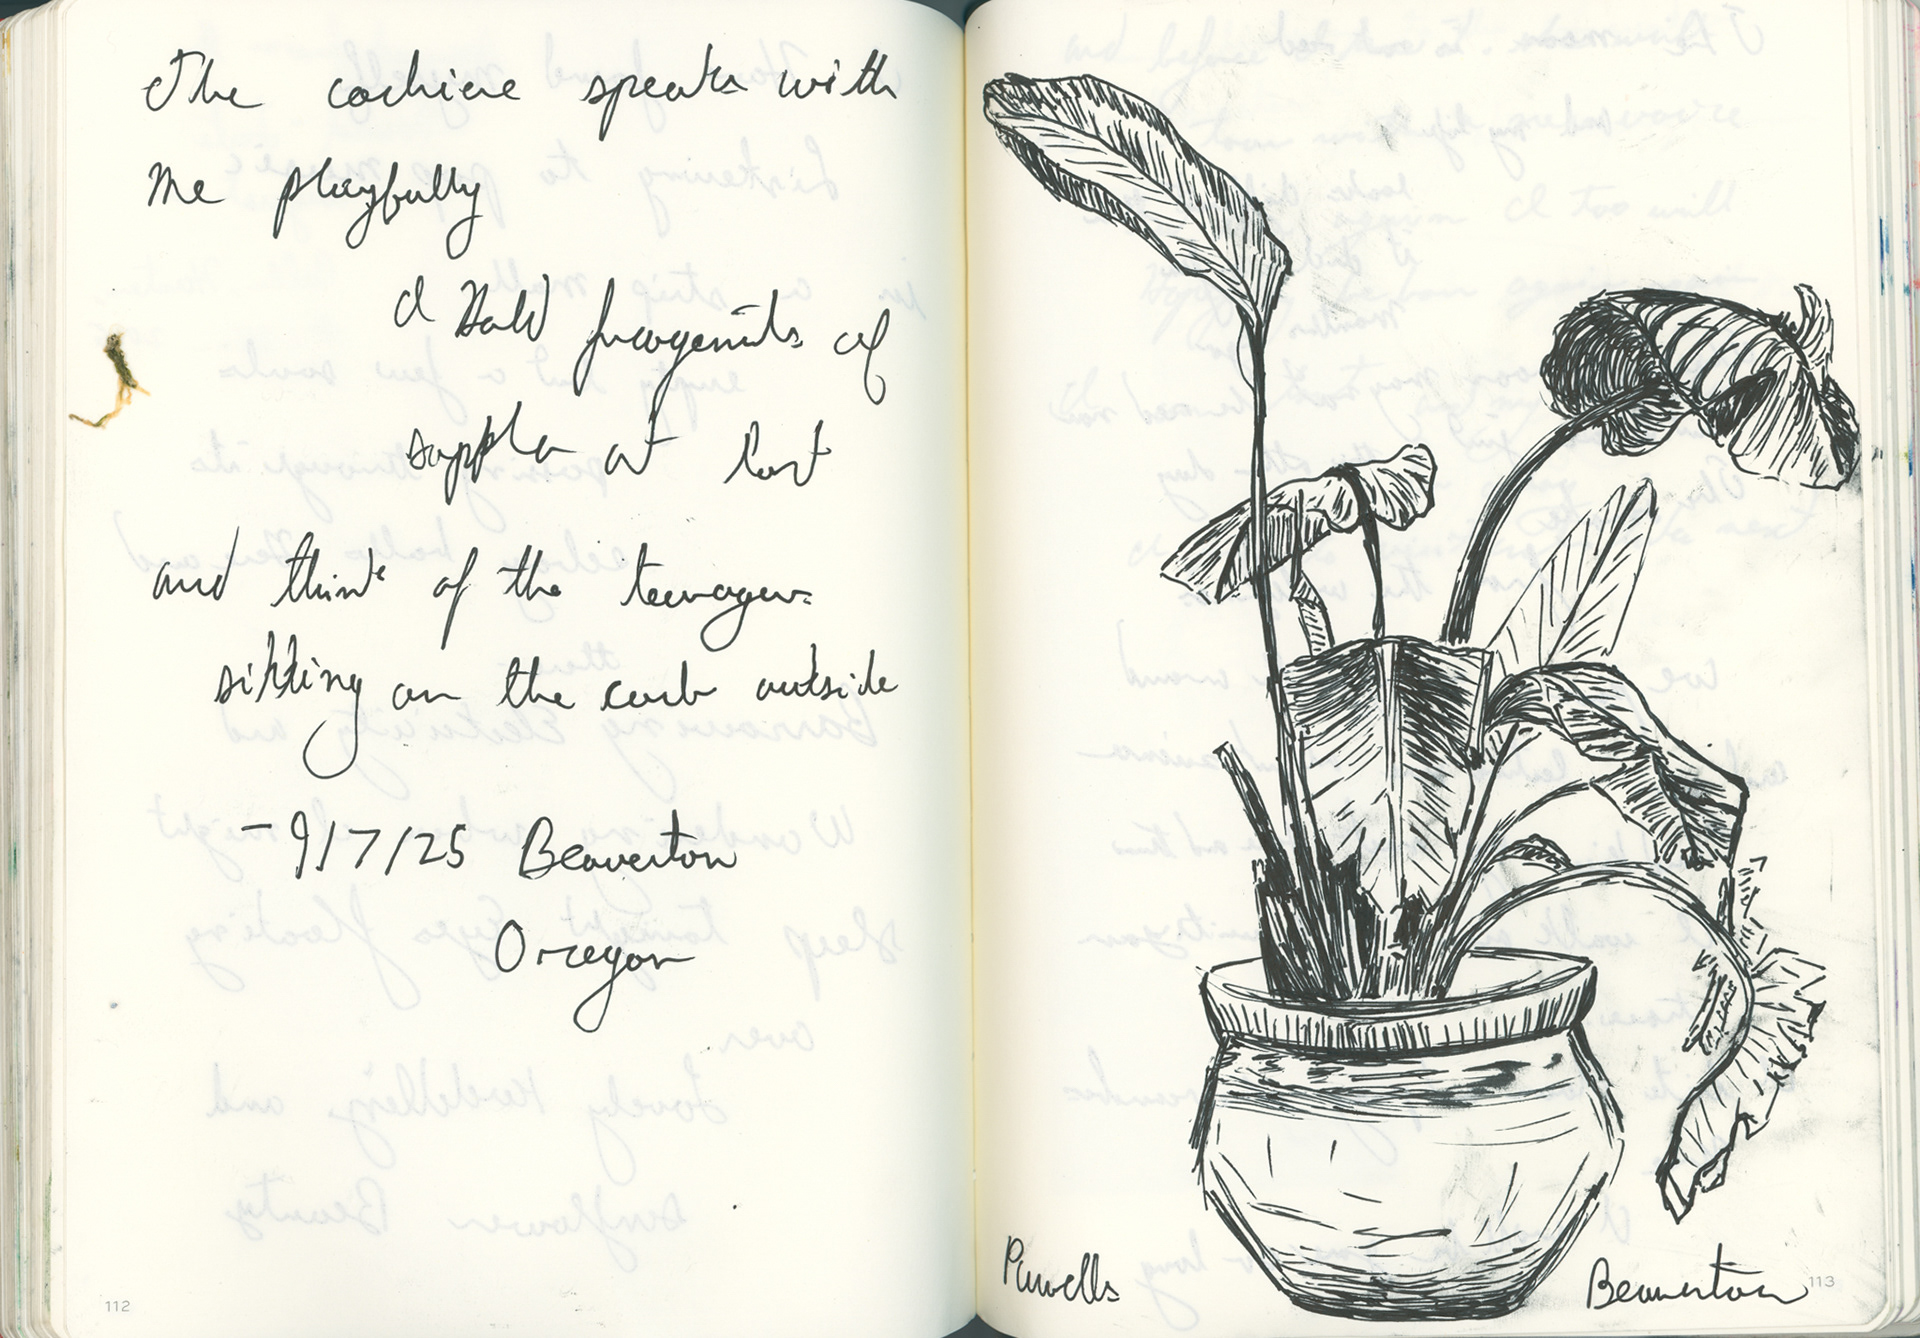 The cashiere speaks with
me playfully
I Hold fragments of
sappho at last
and think of the teenagers
sitting on the curb outside
- 9/7/25 Beaverton
Oregon
112
Powells
Beaverton
113